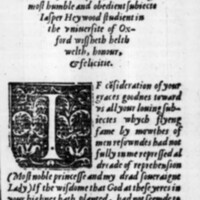 most humble and obedient subiecte
Iasper Heywood student in
the vniuersite of Ox-
ford wissheth helth
welth, honour,
& felicitie.
IF cōsideration of your
graces goodnes toward
vs all your louing sub-
iectes whych flyeng
fame by mowthes of
men resowndes had not
fully in me repressed al
decade of reprehension
(Most noble princesse and my dead soueraygne
Lady) If the wisdome that God at these yeres in
your highnes hath planted, had not